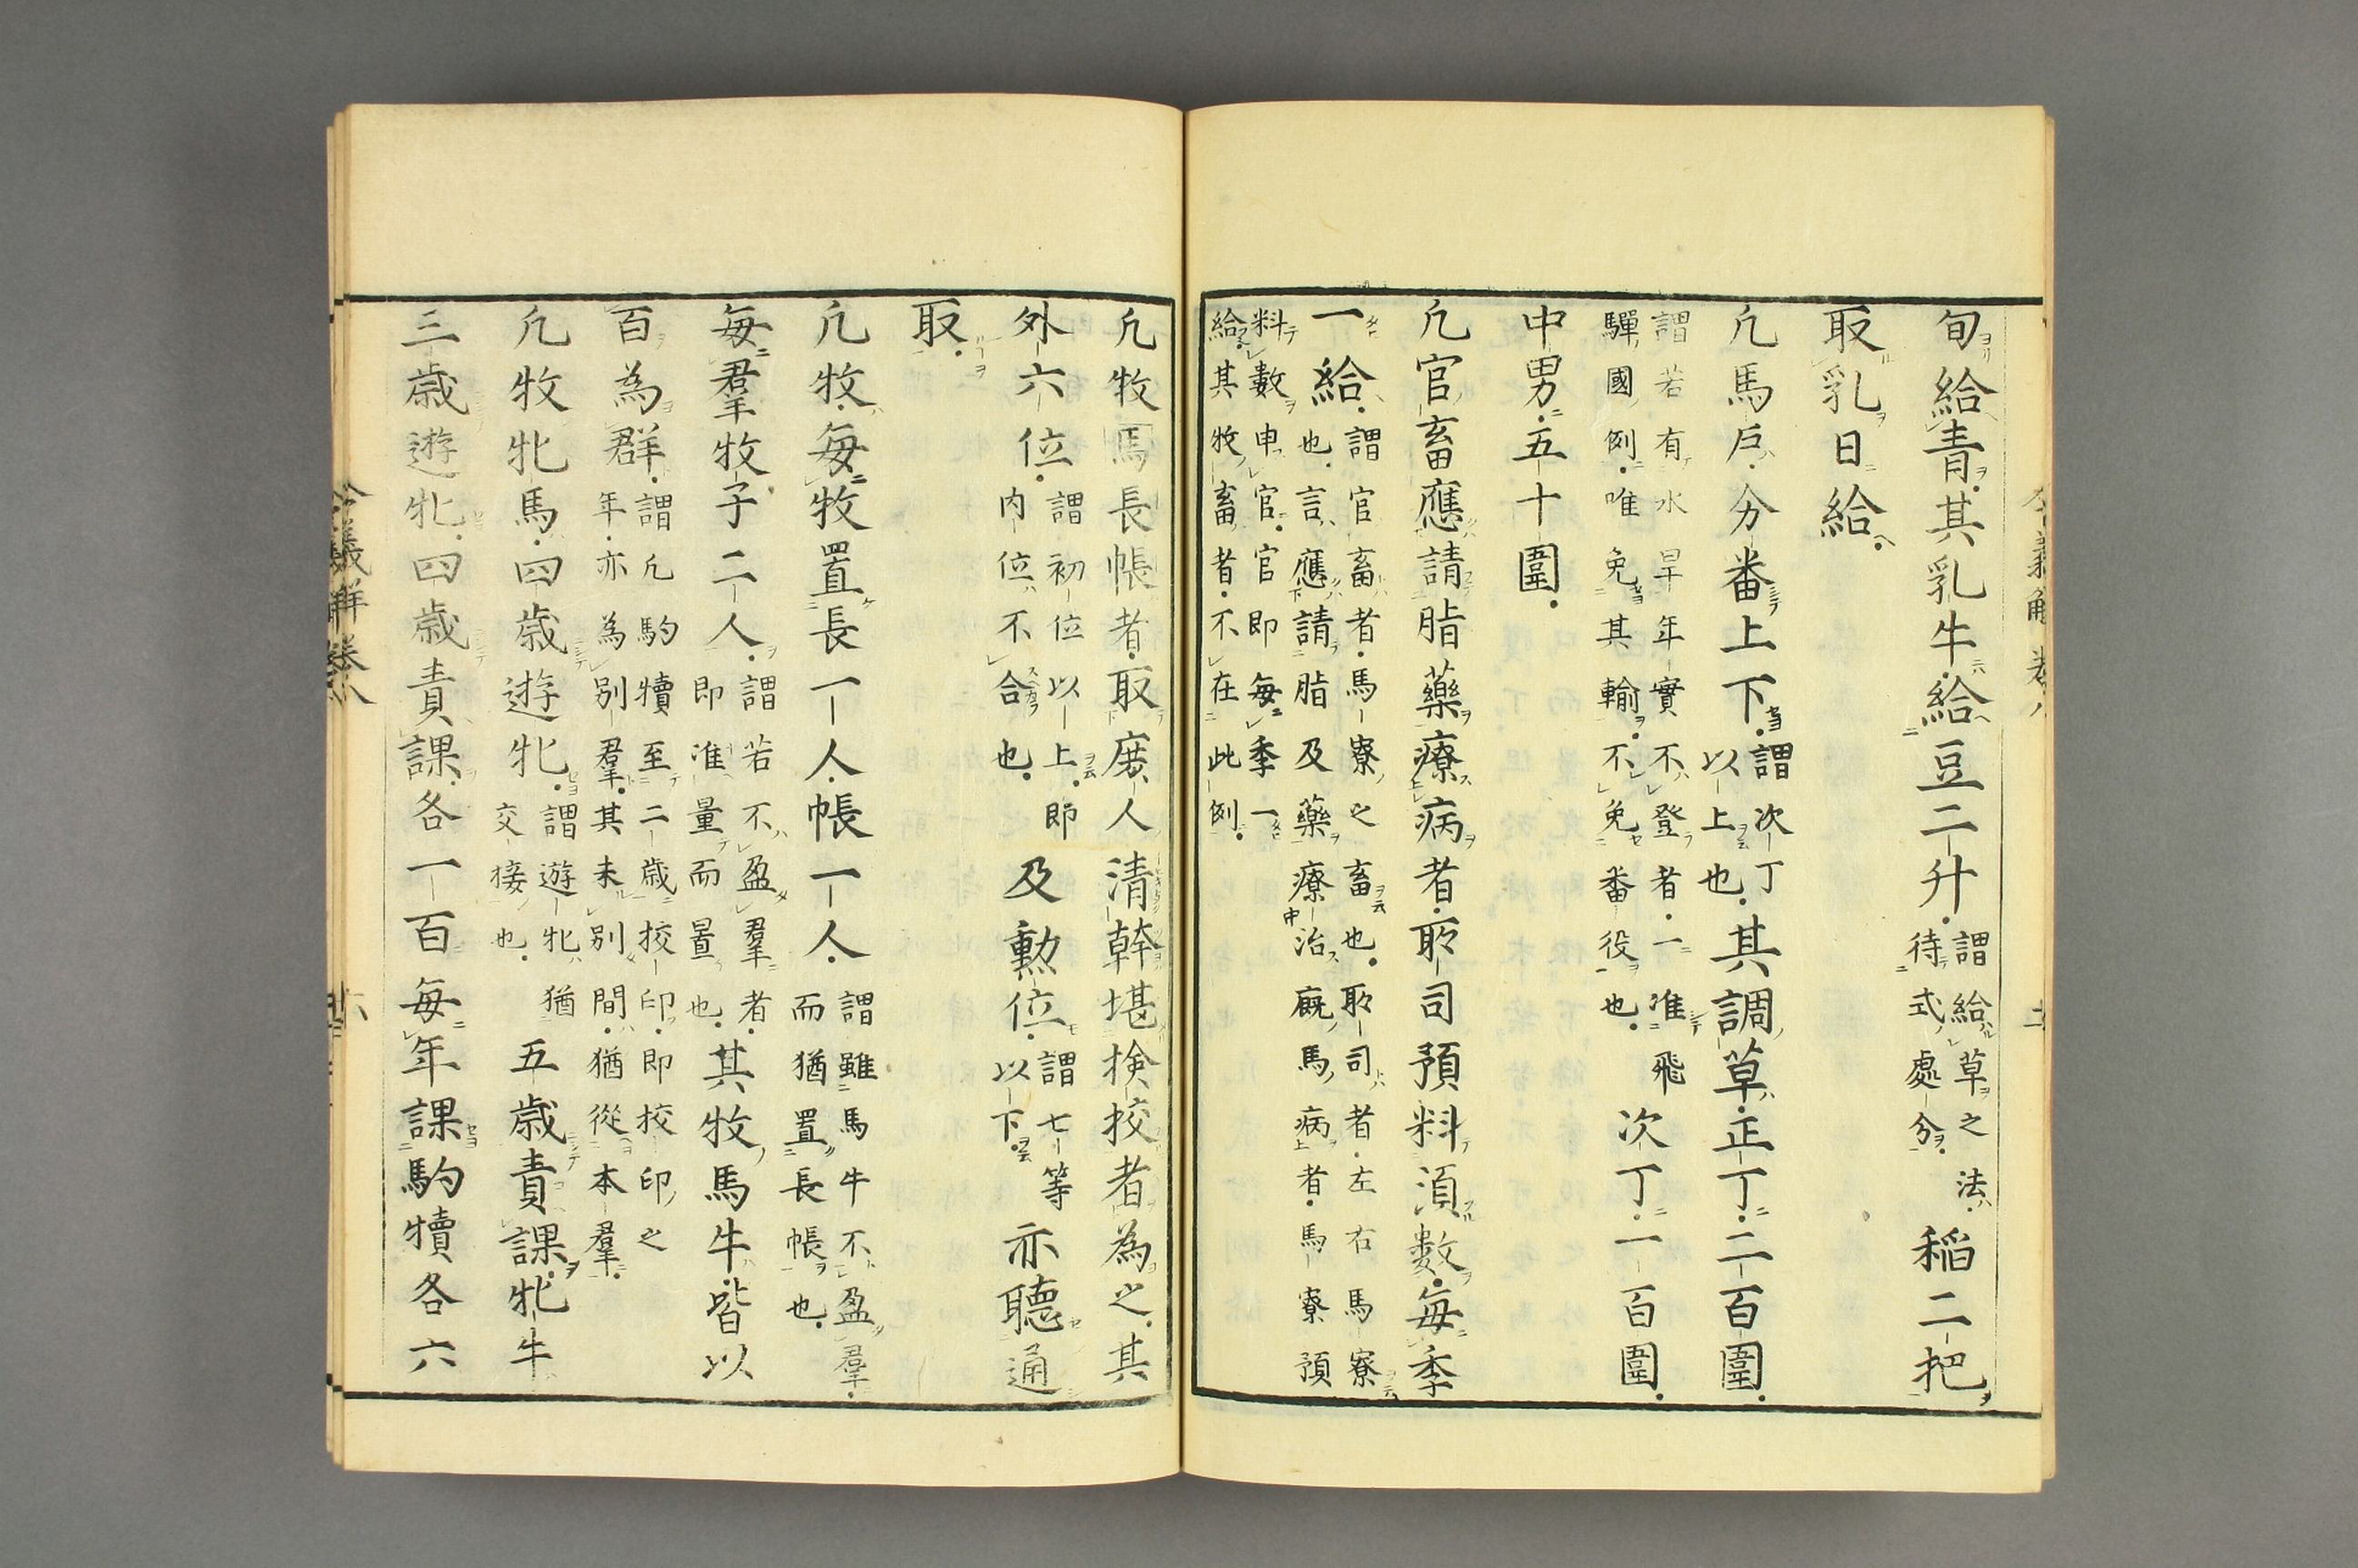 旬給青其乳牛給豆二升謂給草之法待式處分稲二把
取乳日給
凢馬戸分番上下謂次丁以上也其調草正丁二百圍
謂若有水旱年實不登者一准飛驒國例唯免其輸不免番役也次丁一百圍
中男五十圍
凢官畜應請脂藥療病者所司預料湏數每季
一給謂官畜者馬寮之畜也所司者左右馬寮也言應請脂及藥療治廐馬病者馬寮預
料數申官官即每季一給其牧畜者不在此例
凢牧馬長帳者取庶人清幹堪検挍者為之其
外六位謂初位以上即内位不合也及勲位謂七等以下亦聽通
取
凢牧每牧置長一人帳一人謂雖馬牛不盈羣而猶置長帳也
每羣牧子二人謂若不盈羣者即准量而置也其牧馬牛皆以
百為群謂凢駒犢至二歳挍印即挍印之年亦為別羣其未別間猶從本羣
凢牧牝馬四歳遊牝謂遊牝猶交接也五歳責課牝牛
三歳遊牝四歳責課各一百每年課駒犢各六
令義解卷八